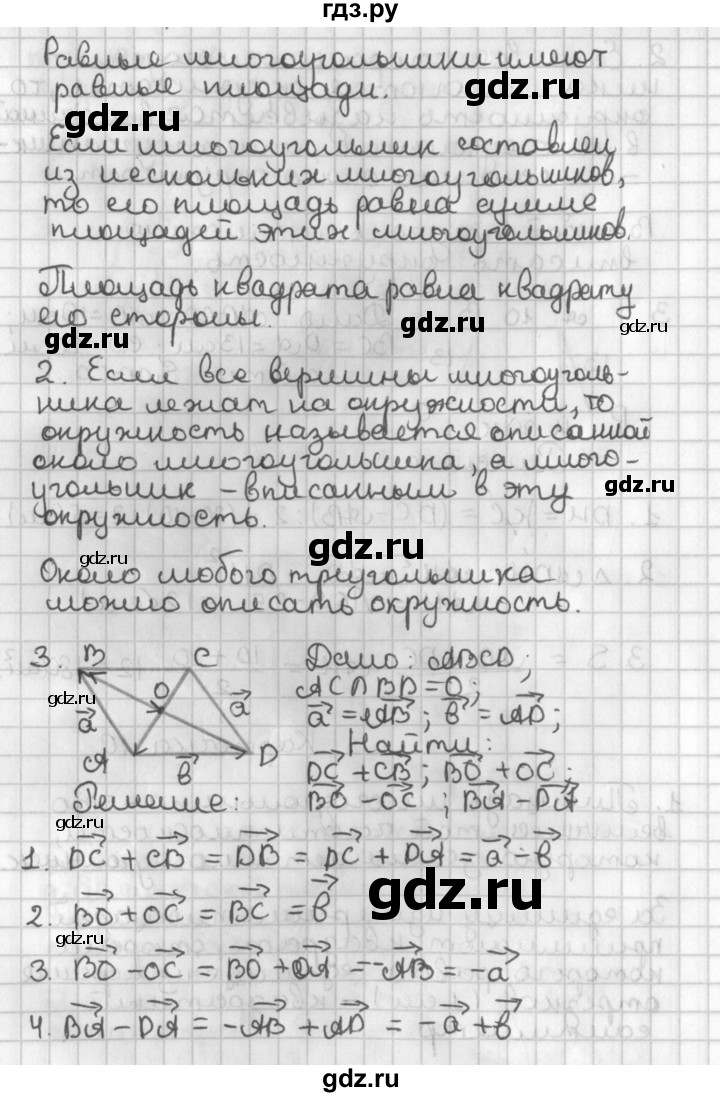 гдз.ру
Равные многоугольники имеют
равные площади.
gdz.ru
gdz.ru
Если многоугольник составлен
из нескольких многоугольников,
то его площадь равна сумме
площадей этих многоугольников.
gdz.ru
gdz.ru
Площадь квадрата равна квадрату
его стороны.
gdz.ru
gdz.ru
gdz.ru
2. Если все вершины многоуголь-
ника лежат на окружности, то
окружность называется описанной
около многоугольника, а много-
угольник – вписанным в эту
окружность.
gdz.ru
gdz.ru
gdz.ru
Около любого треугольника
можно описать окружность.
3. B C Дано: ABCD;
O AC∩BD=O;
gdz.ru
a a a = AB; b = AD;
A b D Найти:
DC + CB; BO + OC;
Решение: BO − OC; BA − DA
gdz.ru
1. DC + CB = DB = DC + DA = a − b
gdz.ru
2. BO + OC = BC = b
gdz.ru
3. BO − OC = BO + OA = −AB = −a
4. BA − DA = −AB + AD = −a + b
gdz.ru